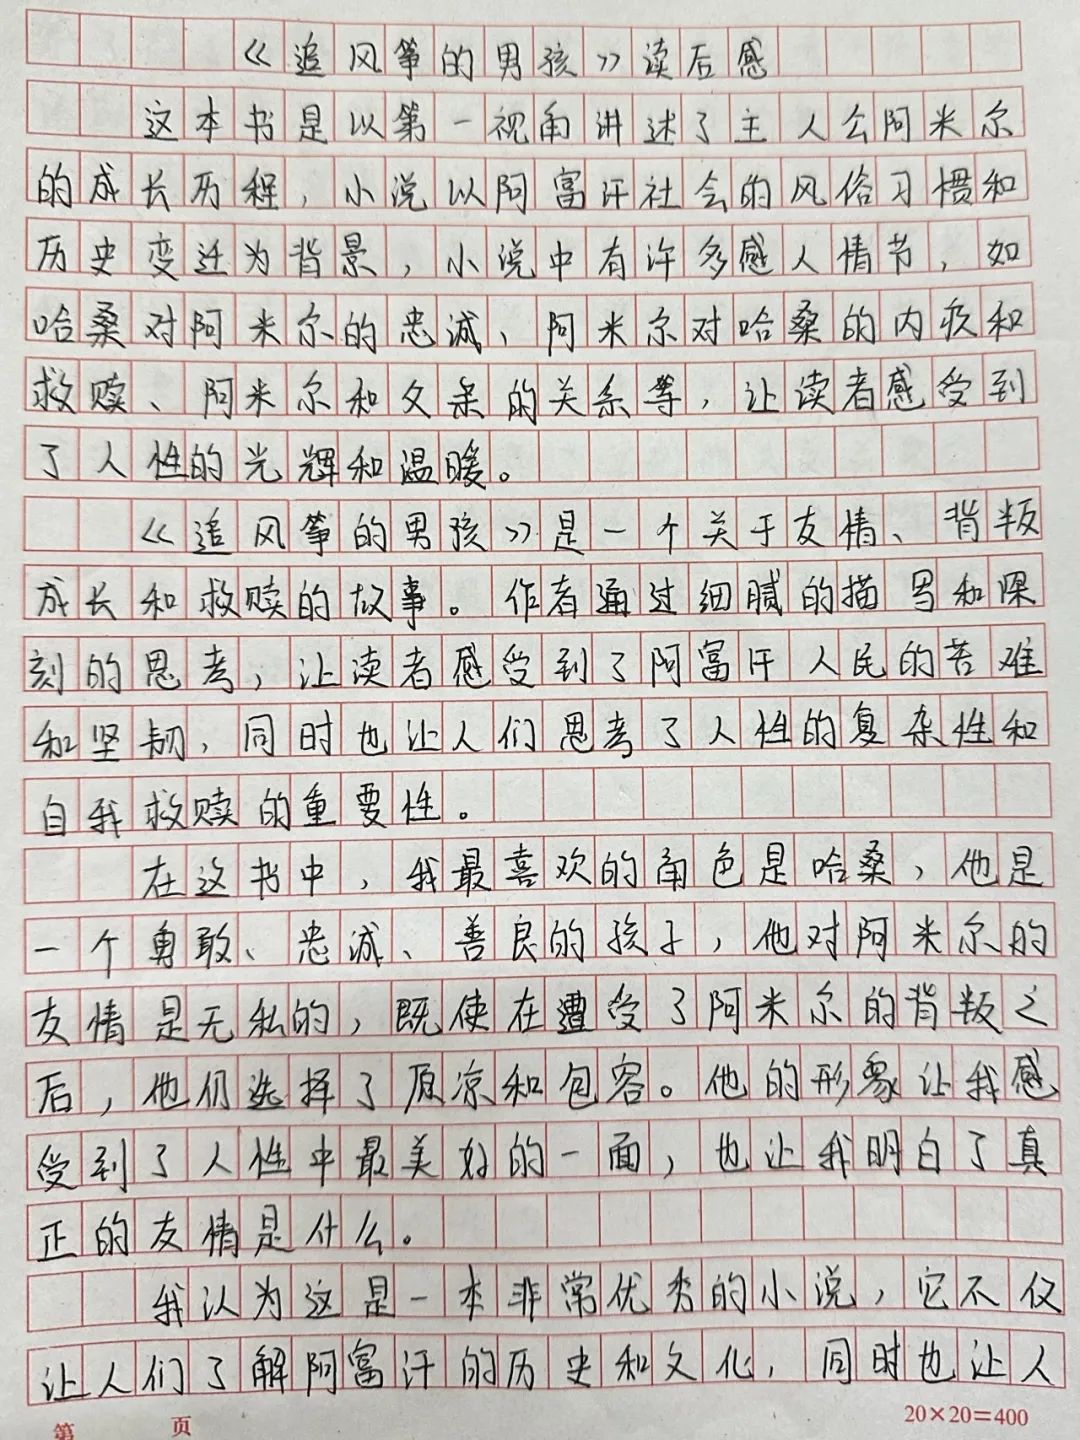 《追风筝的男孩》读后感
这本书是以第一视角讲述了主人公阿米尔
的成长历程，小说以阿富汗社会的风俗习惯和
历史变迁为背景，小说中有许多感人情节，如
哈桑对阿米尔的忠诚、阿米尔对哈桑的内疚和
救赎、阿米尔和父亲的关系等，让读者感受到
了人性的光辉和温暖。
《追风筝的男孩》是一个关于友情、背叛
成长和救赎的故事。作者通过细腻的描写和深
刻的思考，让读者感受到了阿富汗人民的苦难
和坚韧，同时也让人们思考了人性的复杂性和
自我救赎的重要性。
在这书中，我最喜欢的角色是哈桑，他是
一个勇敢、忠诚、善良的孩子，他对阿米尔的
友情是无私的，既使在遭受了阿米尔的背叛之
后，他仍选择了原凉和包容。他的形象让我感
受到了人性中最美好的一面，也让我明白了真
正的友情是什么。
我认为这是一本非常优秀的小说，它不仅
让人们了解阿富汗的历史和文化，同时也让人
第 页
20×20=400